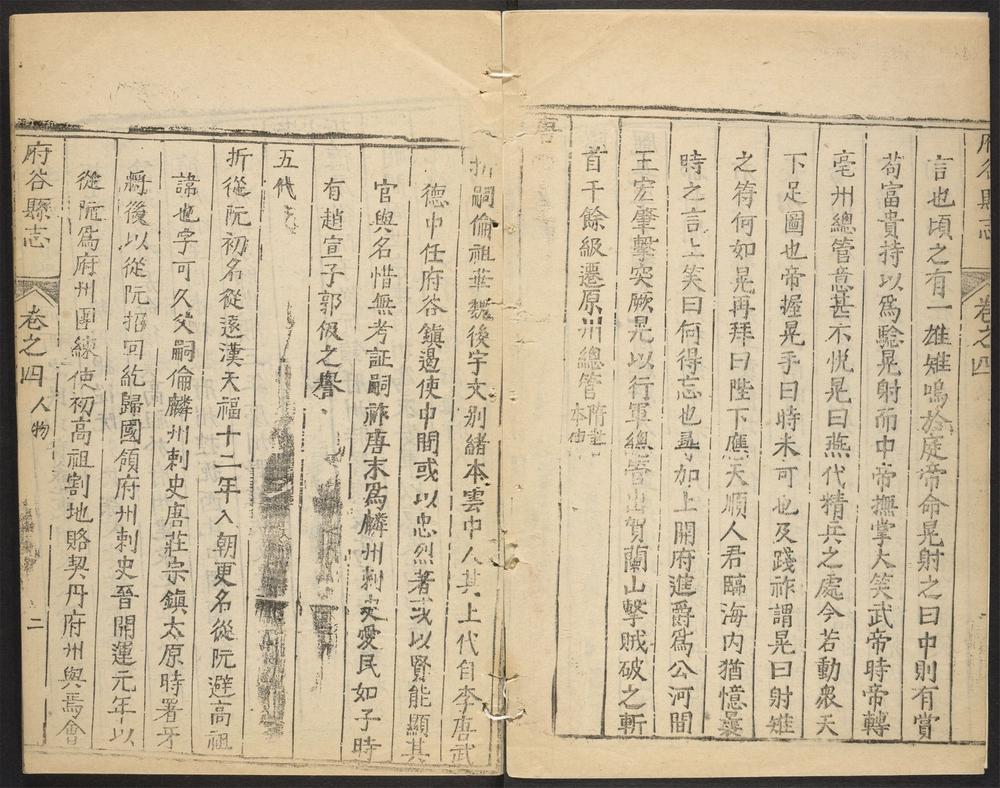 府谷縣志
卷之四
言也頃之有一雄雉鳴於庭帝命晃射之曰中則有賞
苟富貴持以爲驗晃射而中帝撫掌大笑武帝時帝轉
亳州總管意甚不悅晃曰燕代精兵之處今若動衆天
下足圖也帝握晃手曰時未可也及踐祚謂晃曰射雉
之符何如晃再拜曰陛下應天順人君臨海内猶憶曩
時之言上笑曰何得忘也尋加上開府進爵爲公河間
王宏肇擊突厥晃以行軍總管出賀蘭山擊賊破之斬
首千餘級遷原州總管隋書
本傳
唐
折嗣倫祖華魏後宇文别緒本雲中人其上代自李唐武
德中任府谷鎮遏使中間或以忠烈著或以賢能顯其
官與名惜無考証嗣祚唐末爲麟州刺史愛民如子時
有趙宣子郭伋之譽
五代
折從阮初名從遠漢天福十二年入朝更名從阮避高祖
諱也字可久父嗣倫麟州刺史唐莊宗鎮太原時署牙
將後以從阮招回紇歸國領府州刺史晉開運元年以
從阮爲府州團練使初高祖割地賂契丹府州與焉會
府谷縣志
卷之四
人物
二